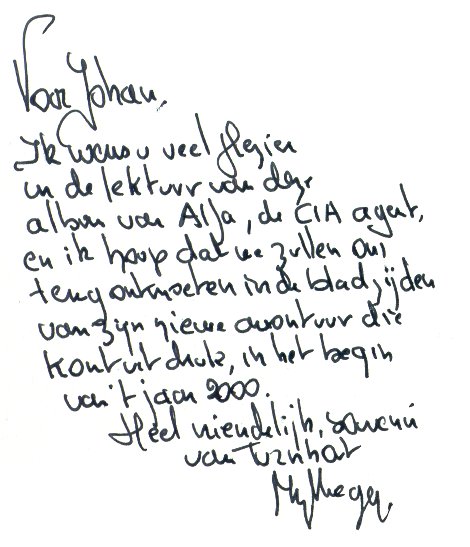 Voor Johan,
Ik wens u veel plezier
in de lektuur van deze
album van Alfa, de CIA agent,
en ik hoop dat we zullen ons
terug ontmoeten in de bladzijden
van zijn nieuwe avontuur die
komt uit druk, in het begin
van 't jaar 2000.
Heel vriendelijk, souvenir
van Turnhout